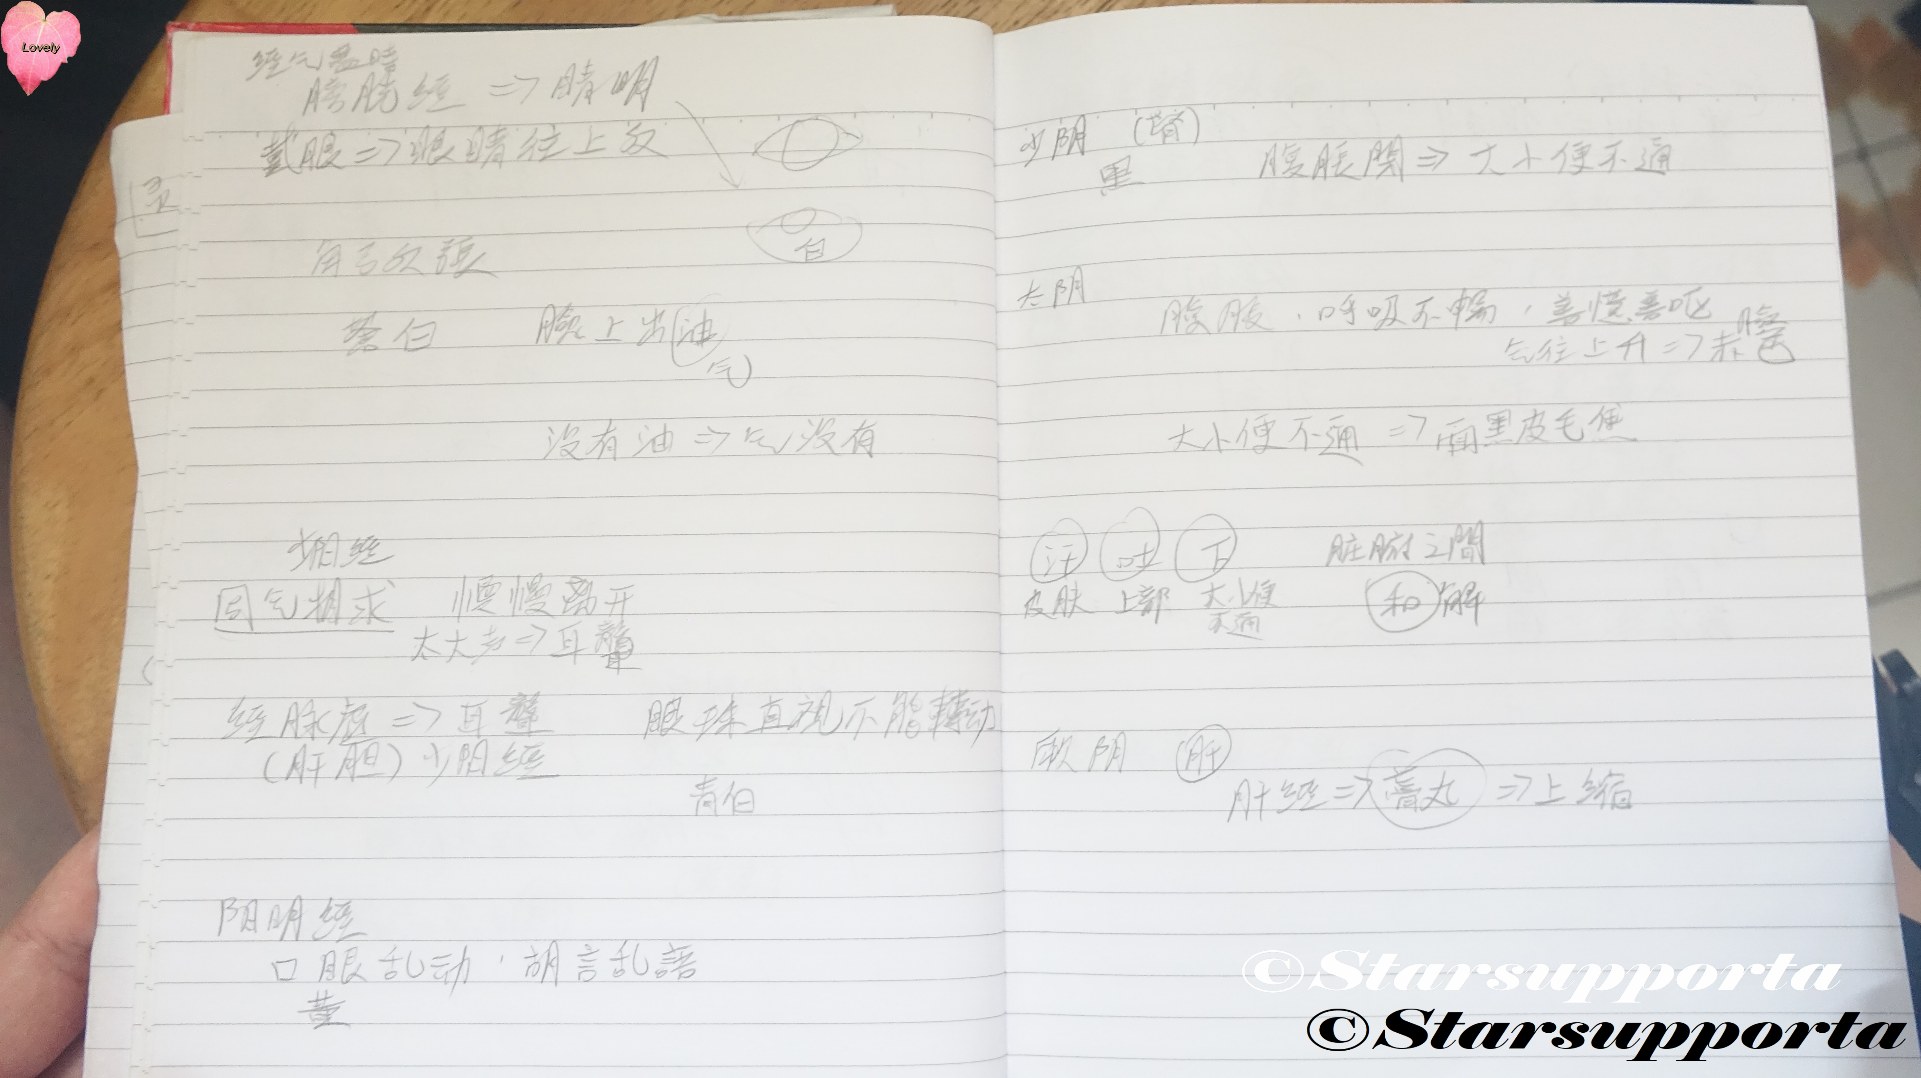 Lovely
膀胱經 => 睛明
戴眼 => 眼睛往上反
白
角弓反張
蒼白 臉上出油
气
没有油 => 气没有
少阳經
同气相求 慢慢离开
太大声 => 耳聾
經脉 => 耳聾 眼珠直视不能轉动
(肝胆) 少阳經
青白
阳明經
口眼乱动,胡言乱語
黄
少阴 (腎)
黑 腹脹閉 => 大小便不通
太阴
腹脹,呼吸不暢,善噫善呕
气往上升 => 赤臉色
大小便不通 => 面黑皮毛焦
汗 吐 下 脏腑之間
皮肤 上部 大小便不通 和解
厥阴 肝
肝經 => 睾丸 => 上縮
©Starsupporta
©Starsupporta